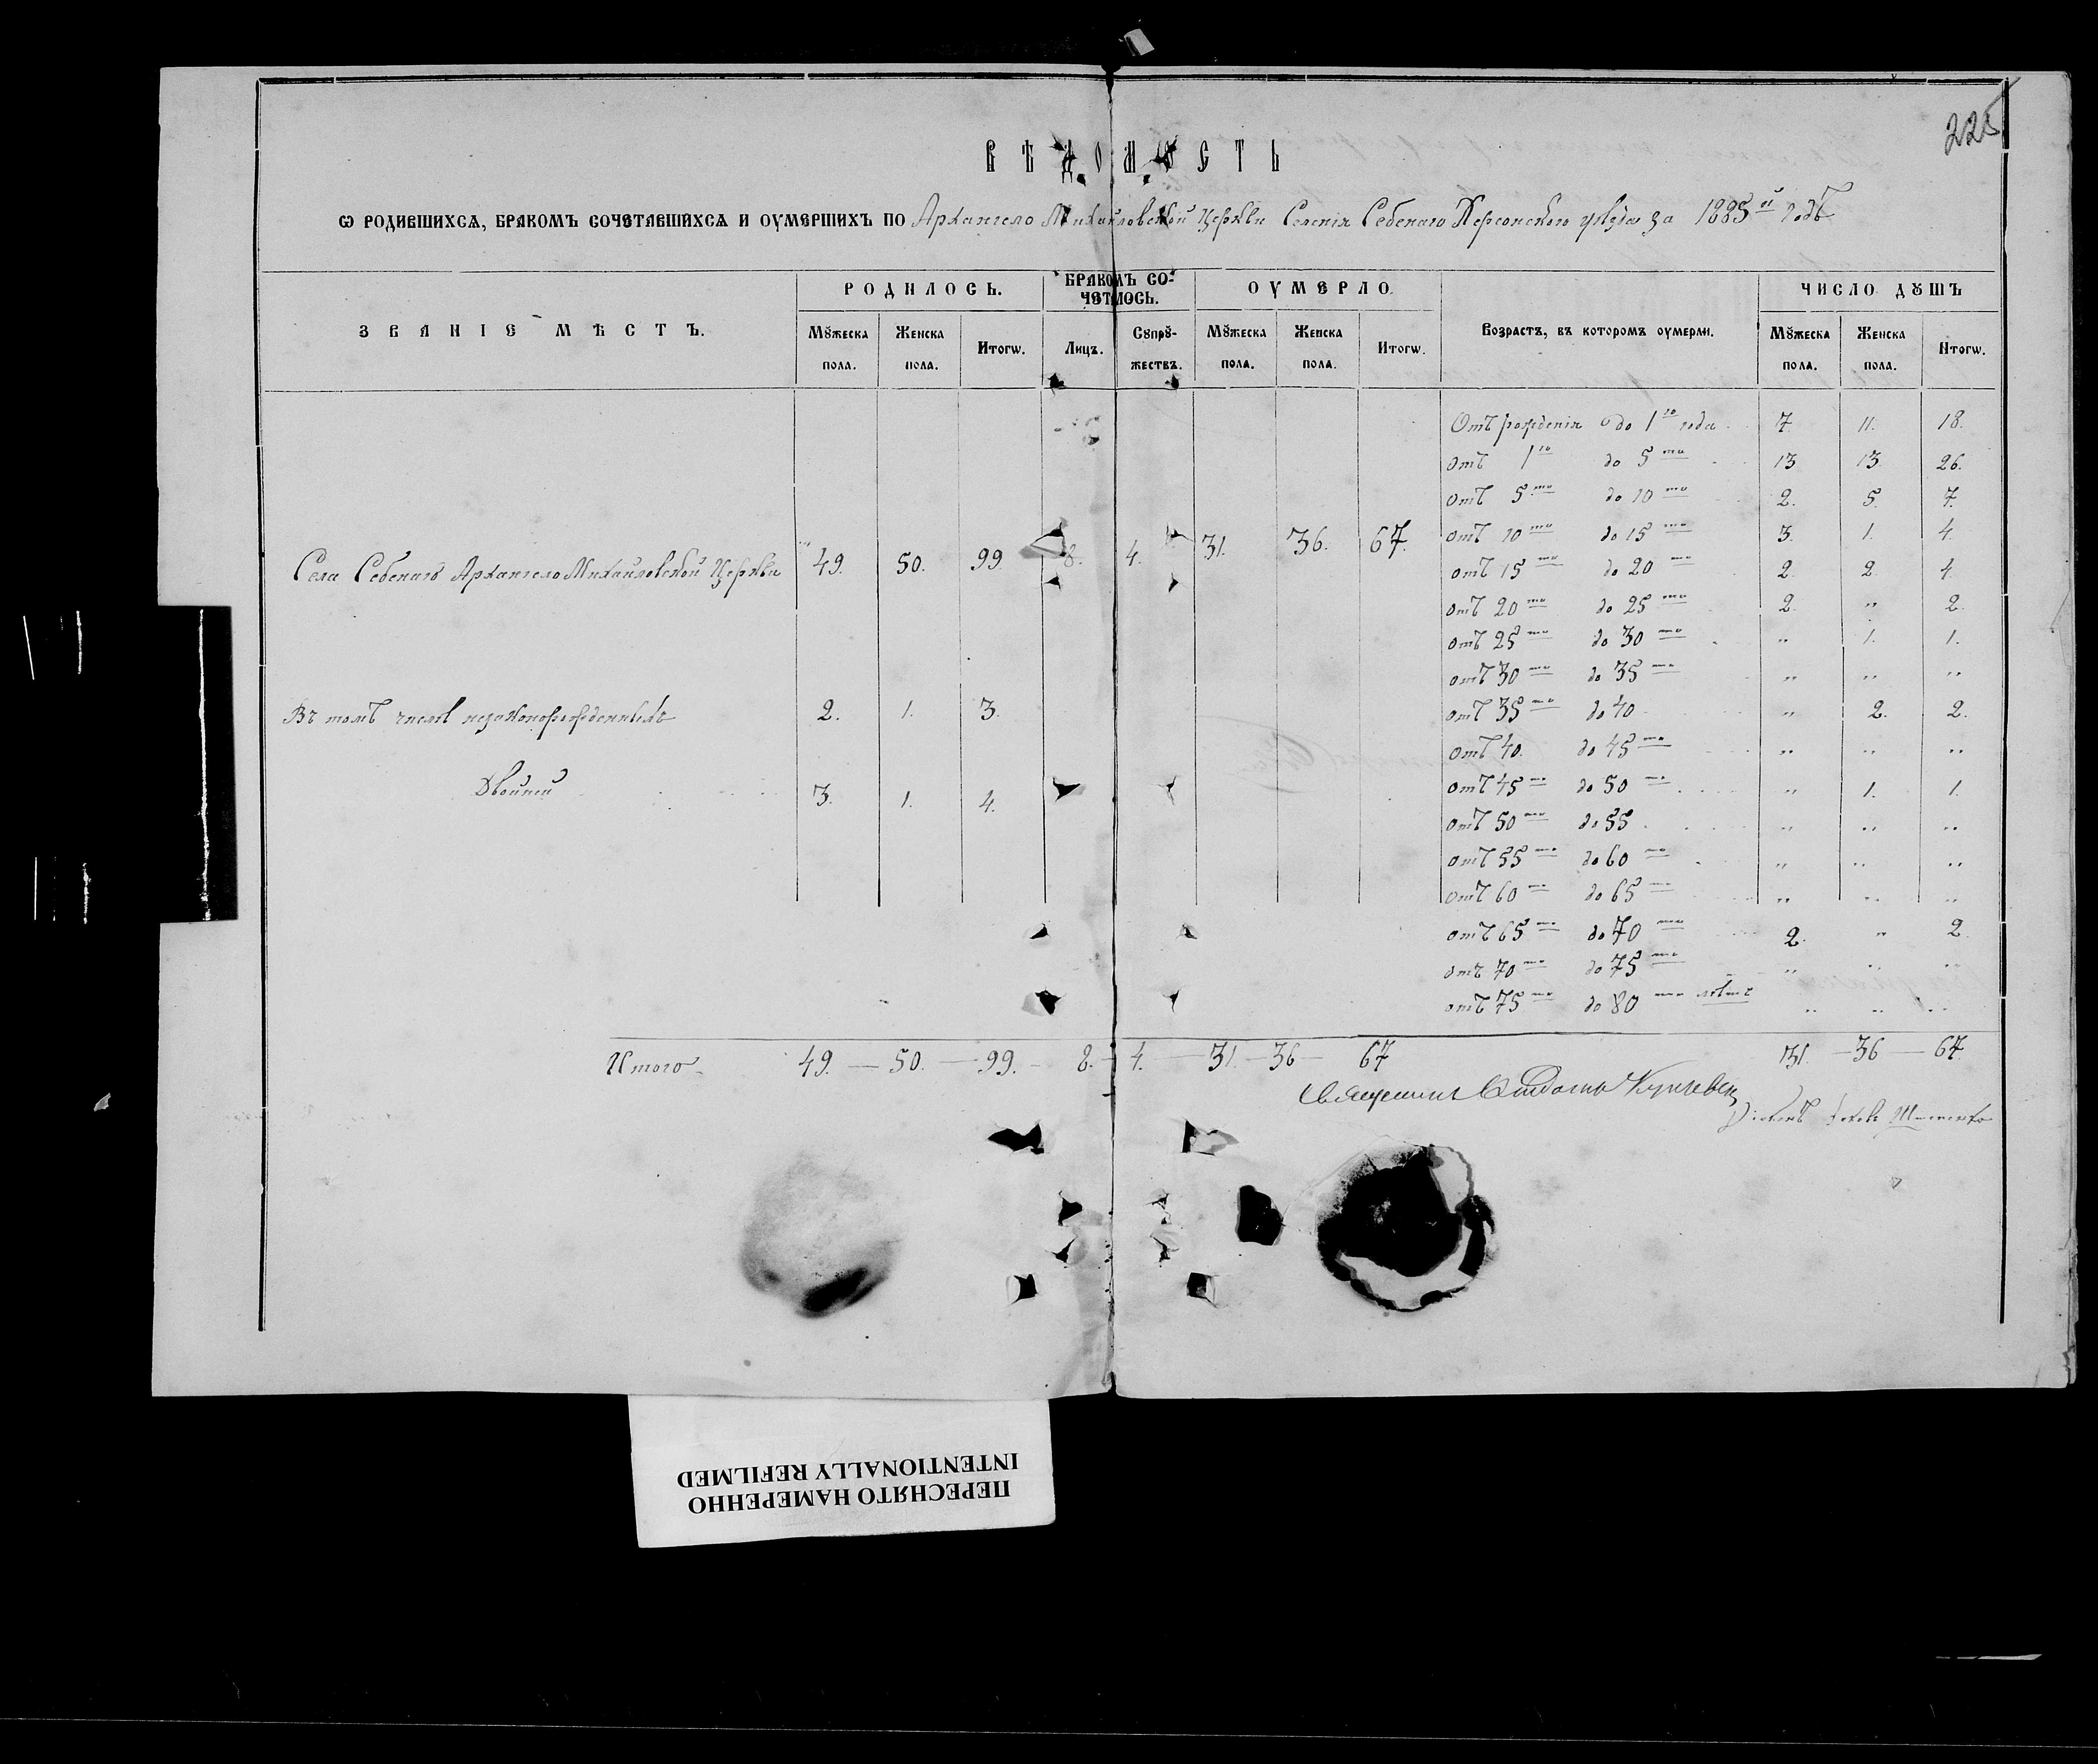 225
ВѢДОМОСТЬ
Ѡ РОДИВШИХСѦ, БРАКОМЪ СОЧЕТАВШИХСѦ И ОУМЕРШИХЪ ПО Архангело Михайловской Церкви Селенія Себенаго Херсонскаго уѣзда за 1885й годъ
ЗВАНІЕ МѢСТЪ.
РОДИЛОСЬ.
БРАКОМЪ СО-
ЧЕТАЛОСЬ.
ОУМЕРЛО.
Возрастъ, въ которомъ оумерли.
ЧИСЛО ДꙊШЪ
Мꙋжеска пола. Женска пола. Итогѡ. Лицъ. Сꙋпрꙋ-жествъ. Мꙋжеска пола. Женска пола. Итогѡ. Мꙋжеска пола. Женска пола. Итогѡ.
Отъ рожденія до 1го года 7. 11. 18.
отъ 1го до 5ти 13 13. 26.
отъ 5ти до 10ти 2. 5. 7.
отъ 10ти до 15ти 3. 1. 4.
Села Себенаго Архангело Михайловской Церкви 49. 50. 99 8. 4. 31. 36. 67.
отъ 15ти до 20ти 2. 2. 4.
отъ 20ти до 25ти 2. " 2.
отъ 25ти до 30ти " 1. 1.
отъ 30ти до 35ти " " "
Въ томъ числѣ незаконорожденныхъ 2. 1. 3.
отъ 35ти до 40 " 2. 2.
отъ 40. до 45ти " " "
Двойней 3. 1. 4.
отъ 45ти до 50ти " 1. 1.
отъ 50ти до 55 " " "
отъ 55ти до 60ти " " "
отъ 60ти до 65ти " " "
отъ 65ти до 70ти 2. " 2
отъ 70ти до 75ти " " "
отъ 75ти до 80ти лѣтъ " " "
Итого 49. — 50. — 99. — 8. — 4. — 31 — 36 — 67 31. — 36 — 67.
Священникъ
Діаконъ
ПЕРЕСНЯТО НАМЕРЕННО
INTENTIONALLY REFILMED